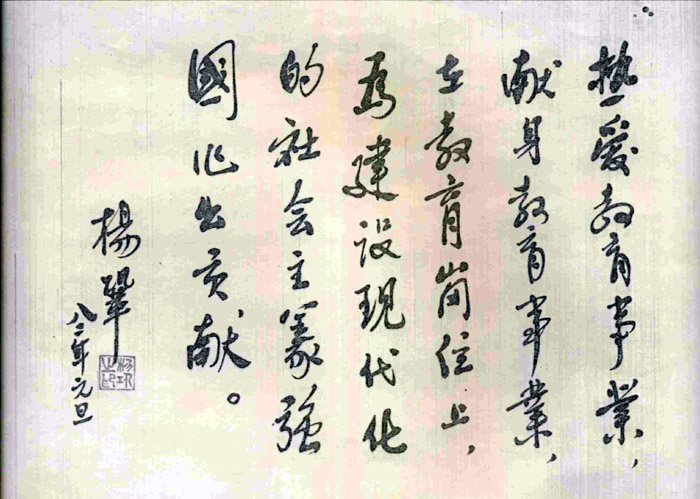 热爱教育事業，
献身教育事業、
在教育崗位上，
为建设现代化
的社会主義强
國作出贡献。
楊鞏
八二年元旦